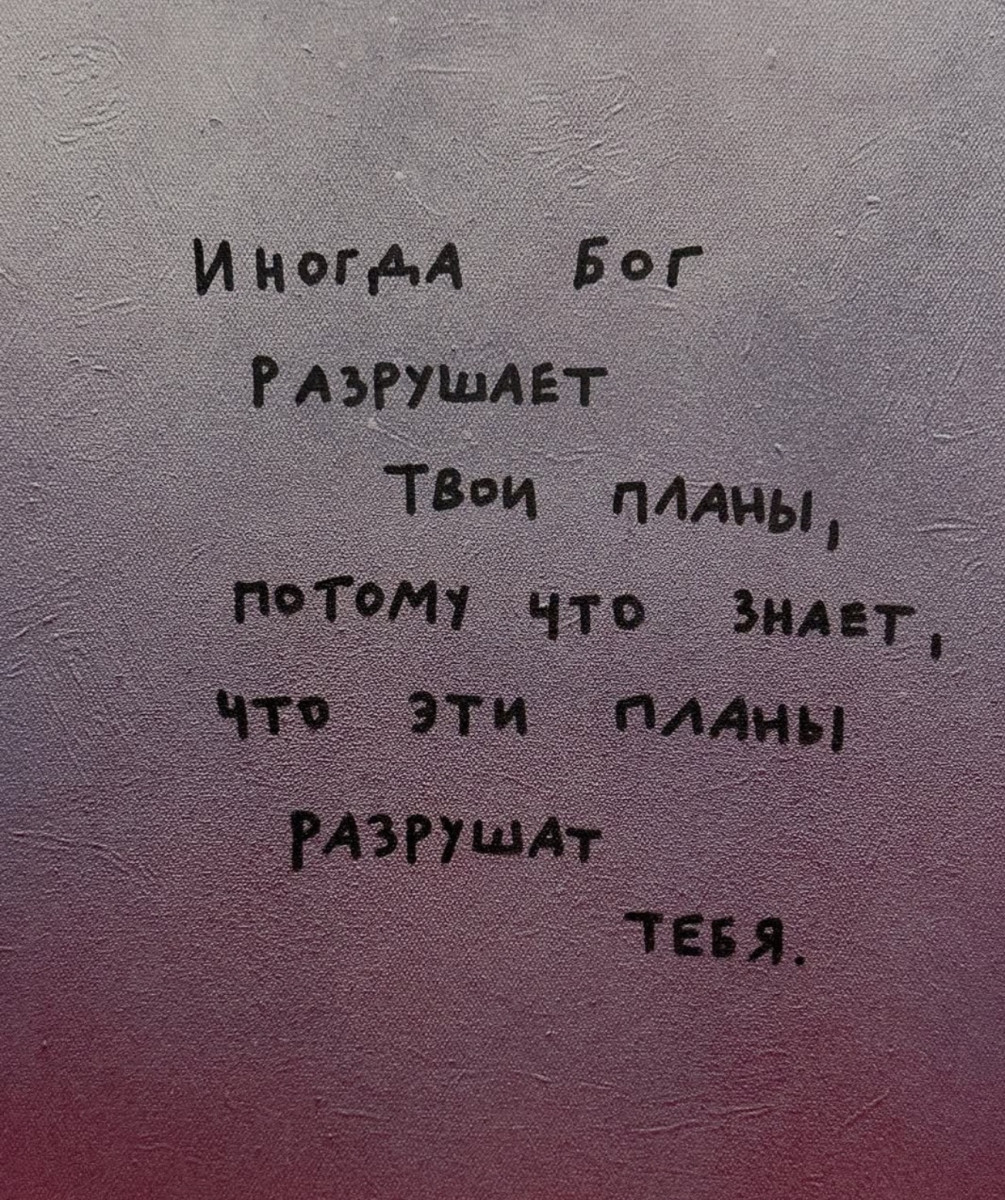 Иногда Бог
РАЗРУШАЕТ
ТВОИ ПЛАНЫ,
ПОТОМУ ЧТО ЗНАЕТ,
ЧТО ЭТИ ПЛАНЫ
РАЗРУШАТ
ТЕБЯ.